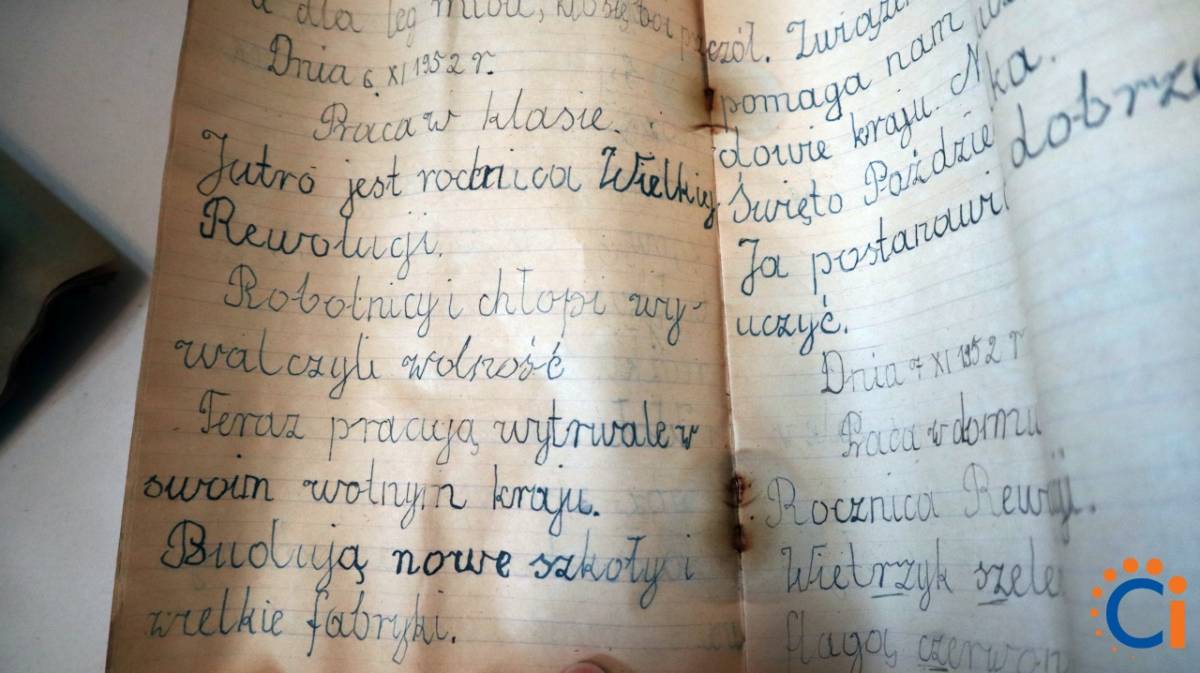 a dla teg miód, kto się boi
Dnia 6 XI 1952 r.
Praca w klasie.
Jutro jest rocznica Wielkiej
Rewolucji.
Robotnicy i chłopi wy-
walczyli wolność
Teraz pracują wytrwale w
swoim wolnym kraju.
Budują nowe szkoły i
wielkie fabryki.
pszczół. Związ
pomaga nam
dowie kraju. N
Święto Paździe
Ja postanowi
uczyć.
Dnia 7 XI 1952 r
Praca w domu
Rocznica Rewoji.
Wietrzyk szele
flagą czerwon
ka.
dobrze
Ci